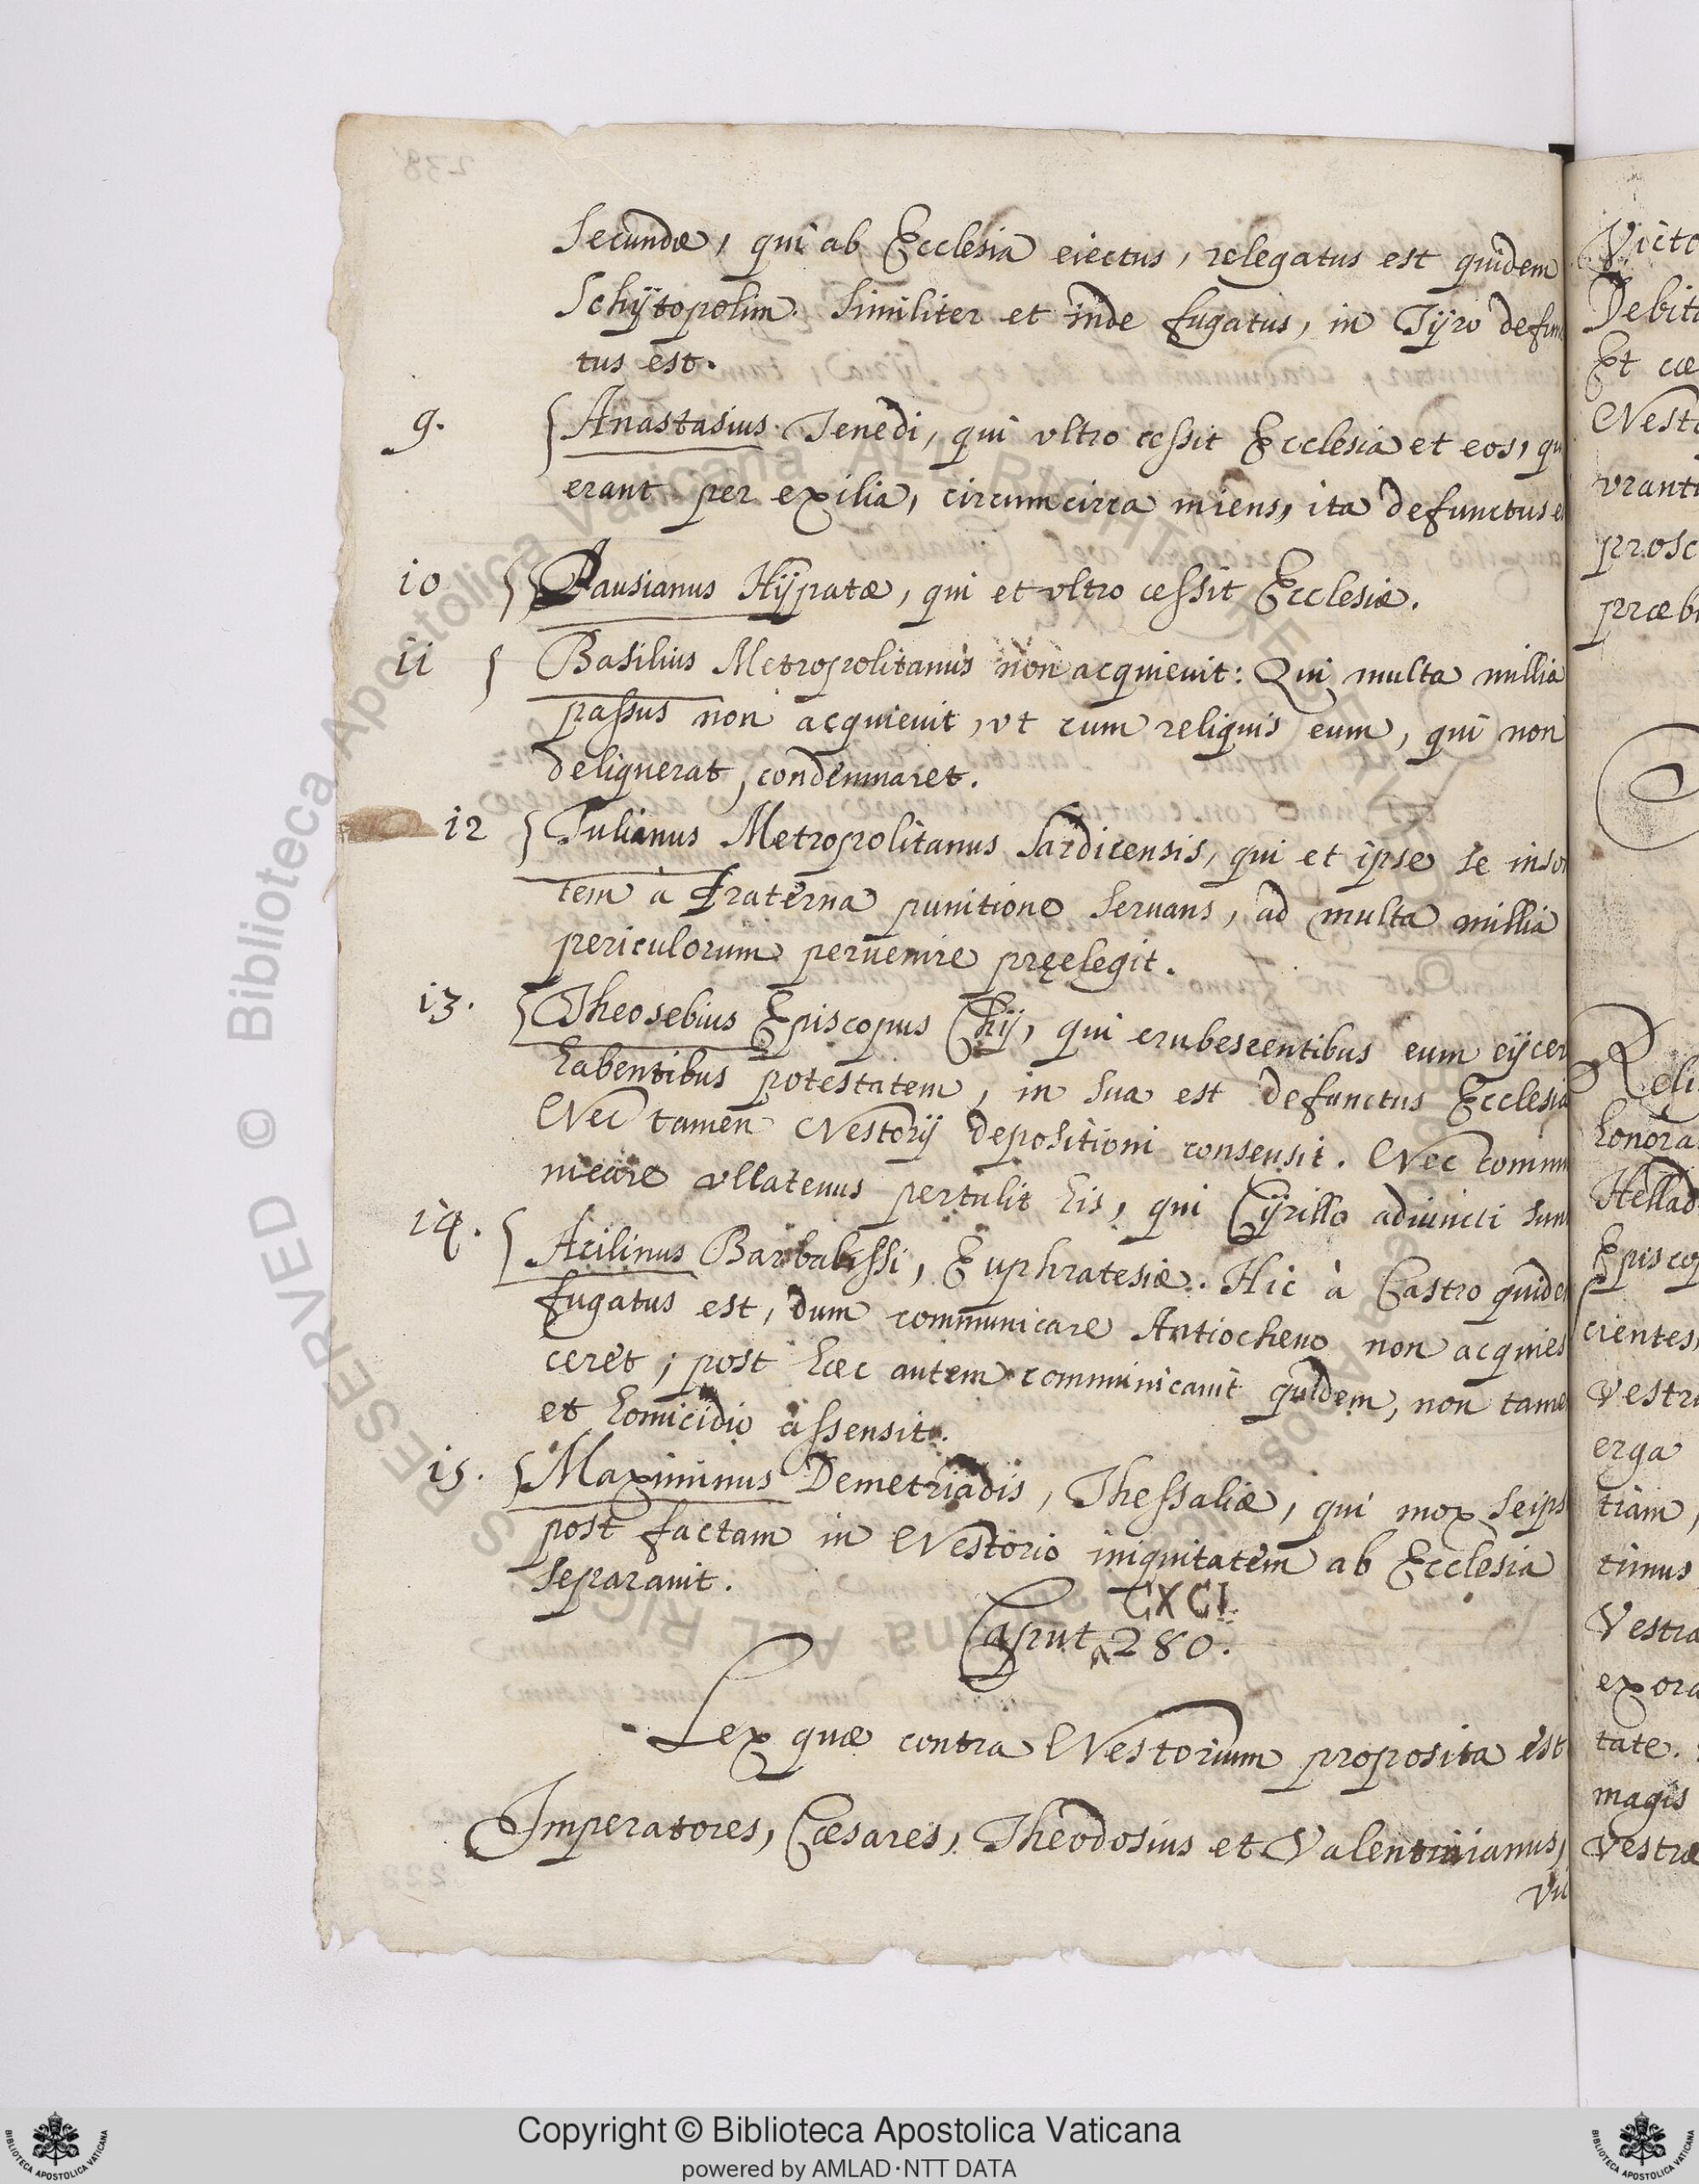 Secundæ, qui ab Ecclesia eiectus, relegatus est quidem
Schÿtopolim. Similiter et inde fugatus, in Tÿro defun
tus est.
9. Anastasius Tenedi, qui vltro cessit Ecclesia et eos, qu
erant per exilia, circumcirca iniens, ita defunctus e
10 Pausianus Hÿpatæ, qui et vltro cessit Ecclesiæ.
11 Basilius Metropolitanus non acquieuit: Qui multa millia
passus non acquieuit, vt cum reliquis eum, qui non
deliquerat, condemnaret.
12 Iulianus Metropolitanus Sardicensis, qui et ipse se inson
tem à fraterna punitione seruans, ad multa millia
periculorum peruenire pręelegit.
13. Theosebius Episcopus Chij, qui erubescentibus eum eijcer
habentibus potestatem, in sua est defunctus Ecclesia
Nec tamen Nestorij depositioni consensit. Nec commu
nicare vllatenus pertulit his, qui Cÿrillo adiuncti sun
14. Acilinus Barbalissi, Euphratesiæ. Hic à Castro quide
fugatus est, dum communicare Antiocheno non acquies
ceret; post hæc autem communicauit quidem, non tame
et homicidio assensit.
15. Maximinus Demetriadis, Thessaliæ, qui mox seips
post factam in Nestorio iniquitatem ab Ecclesia
separauit.
CXCI.
Caput 280.
Lex quæ contra Nestorium proposita est
Imperatores, Cæsares, Theodosius et Valentinianus,
Vic
238
Victo
Debit
Et cæ
Nest
vranti
prosc
præb
Reli
honora
Hellad
Episcop
cientes,
vestr
erga
tiam,
timus
Vestra
exora
tate.
magis
vestræ
© Biblioteca Apostolica Vaticana ALL RIGHTS RESERVED
Copyright © Biblioteca Apostolica Vaticana
powered by AMLAD·NTT DATA
BIBLIOTECA APOSTOLICA VATICANA
BIBLIOTECA APOSTOLICA VATICANA